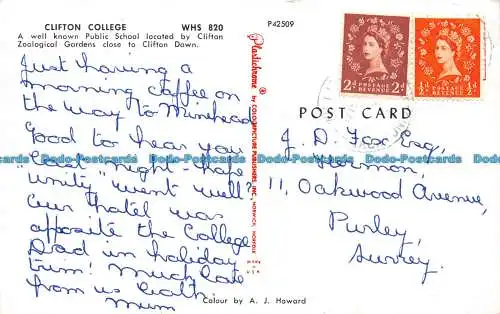 CLIFTON COLLEGE WHS 820
A well known Public School located by Clifton
Zoological Gardens close to Clifton Down.
P42509
Just having a
morning coffee on
the way to Minehead
Good to hear you
last night - hope
unity "went well?
Our hotel was
opposite the College
Dad in holiday
trim! Much love
from us both.
Mum
Plastichrome ® by COLOURPICTURE PUBLISHERS, INC. NORWICH, NORFOLK
MADE IN U.S.A.
Colour by A. J. Howard
2D POSTAGE REVENUE 2D
½D POSTAGE REVENUE ½D
POST CARD
J. D. Fox Esq,
Hermon,
11, Oakwood Avenue,
Purley,
Surrey.
Docards-Postcards Docards-Postcards Docards-Postcards